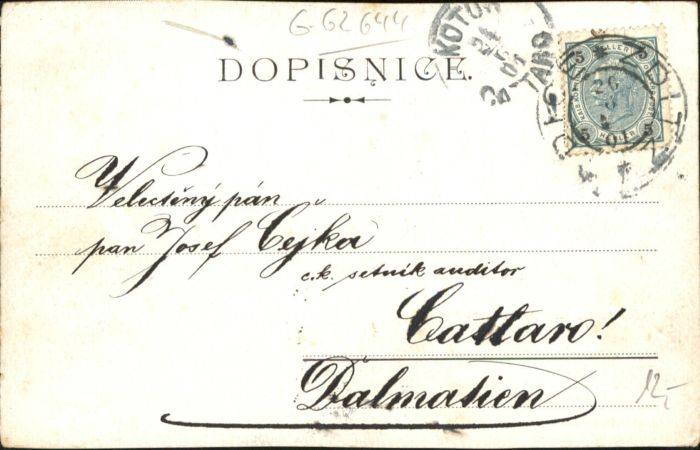 G-62644
DOPISNICE.
5 HELLER 5
5 HELLER 5
Velectěný pán
pan Josef Čejka
c.k. setník auditor
Cattaro!
Dalmatien
12,-